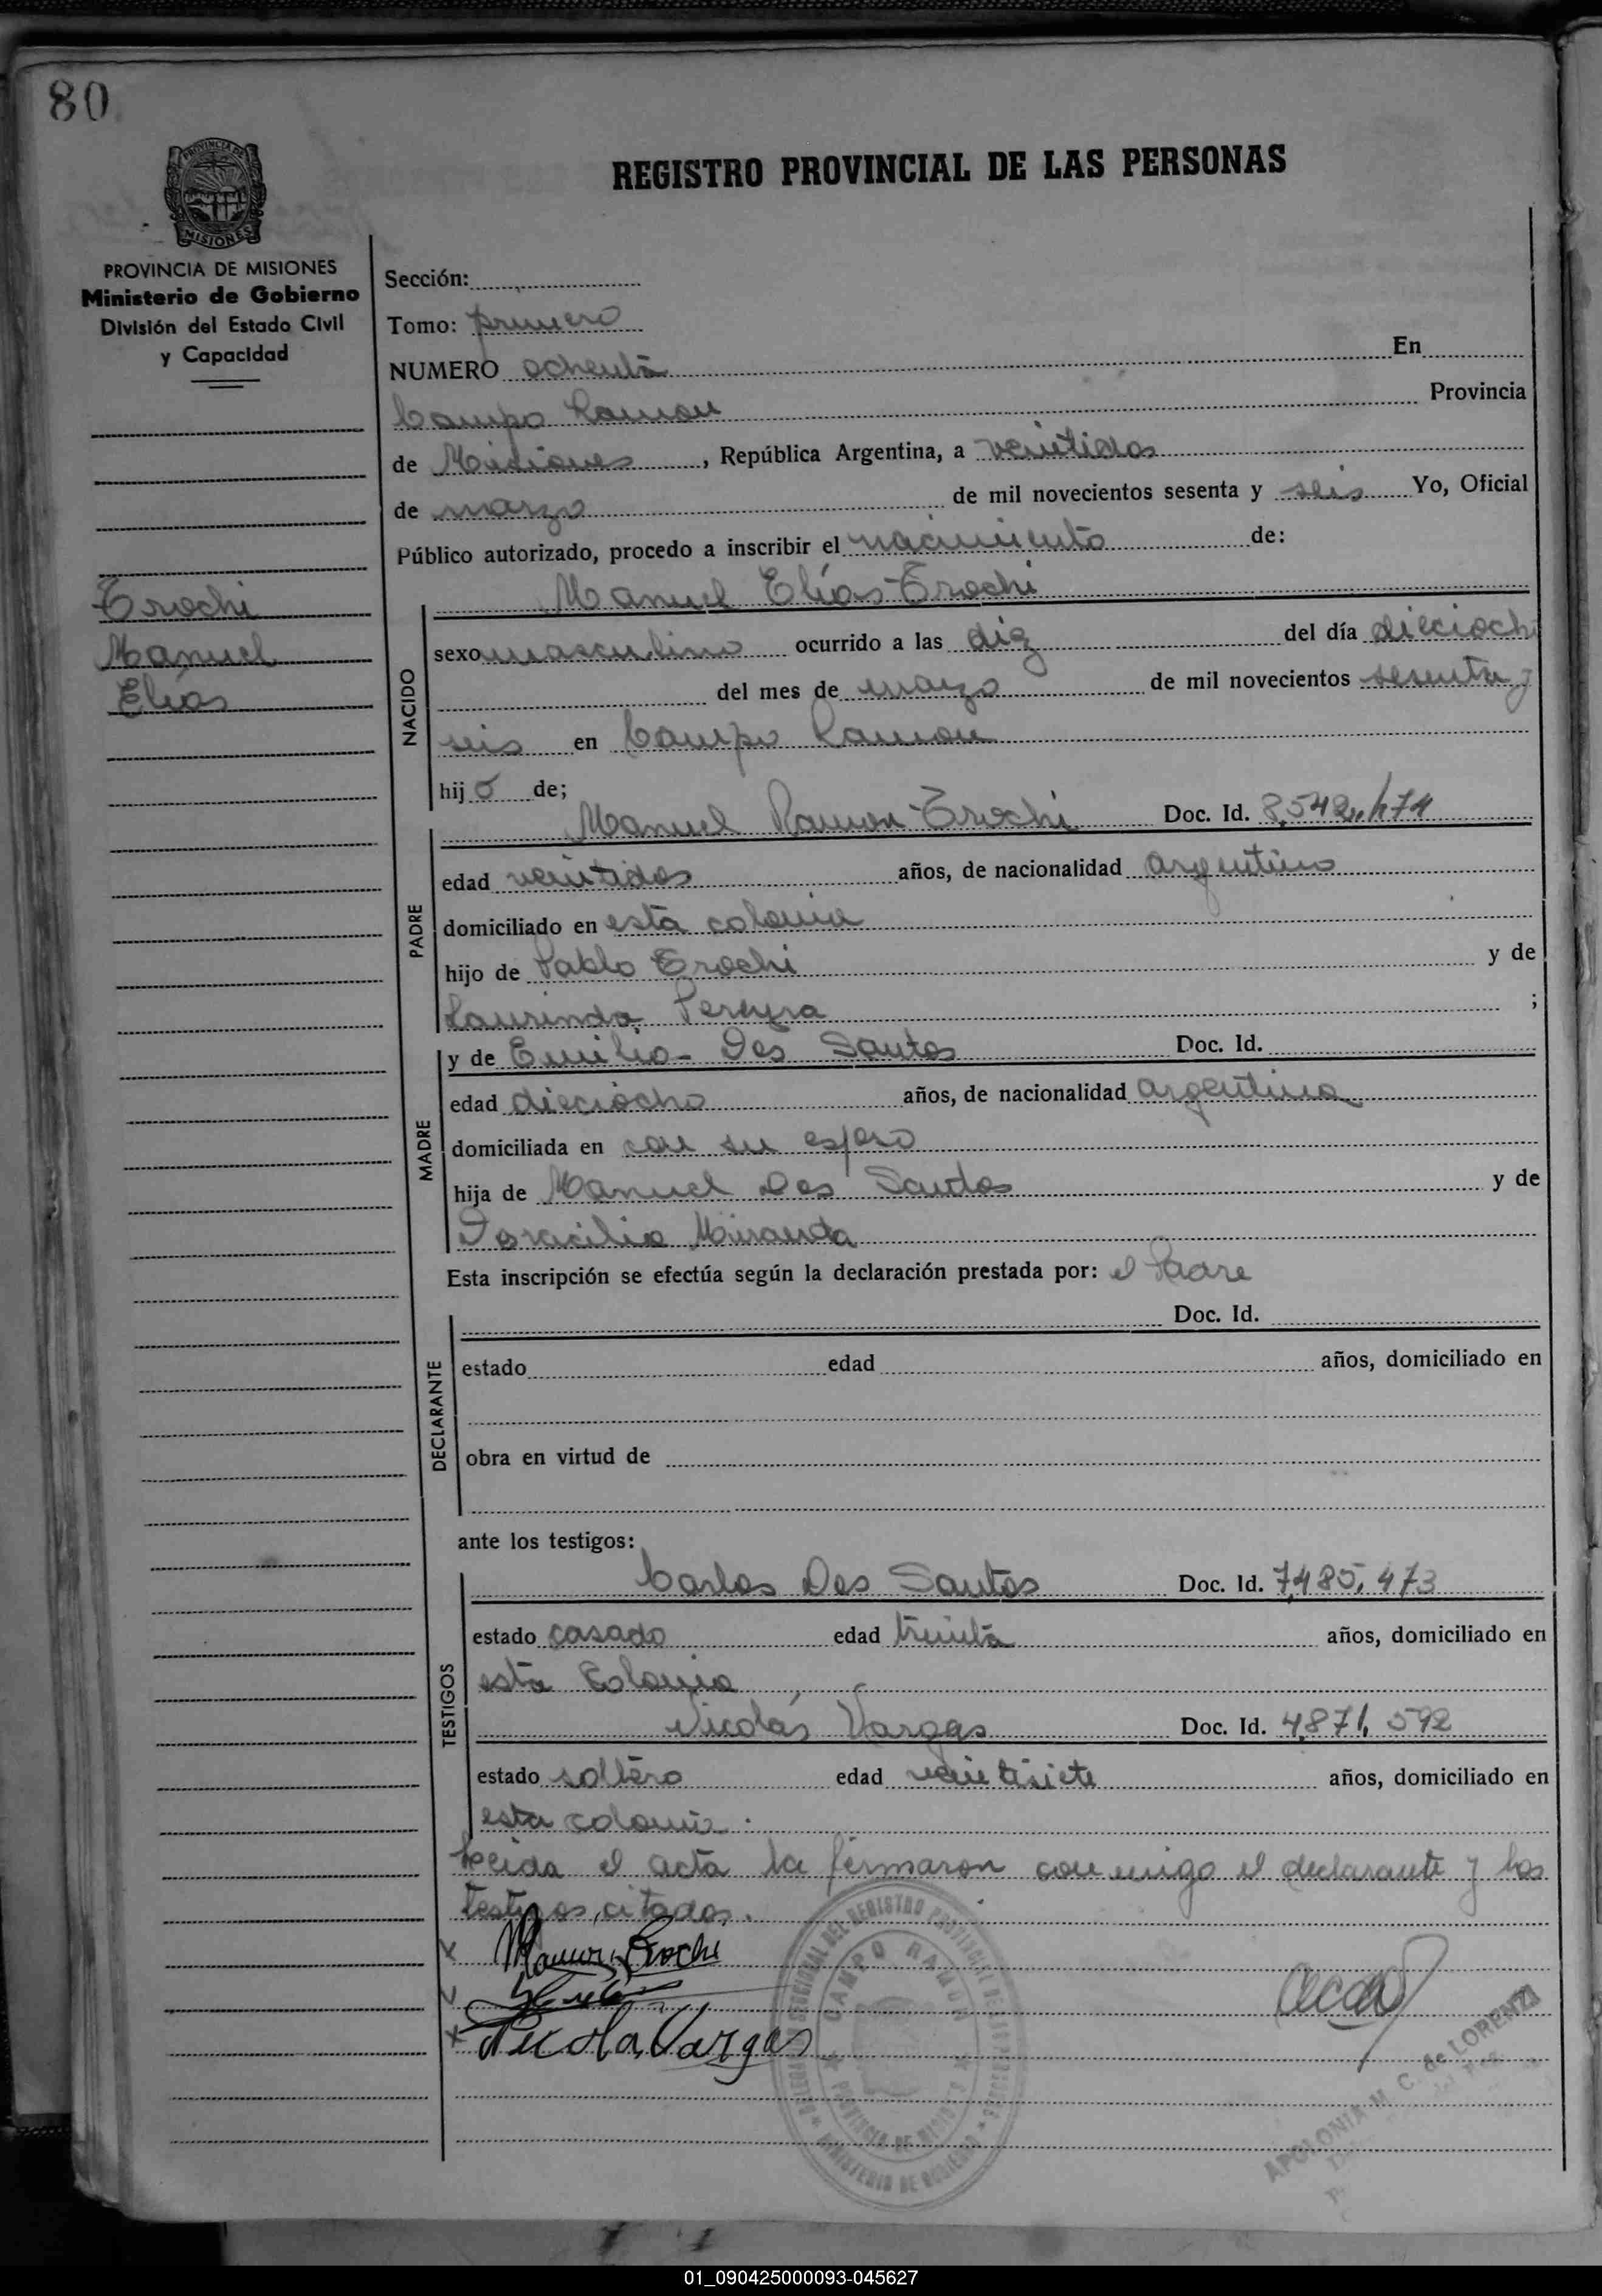 80
REGISTRO PROVINCIAL DE LAS PERSONAS
PROVINCIA DE
MISIONES
PROVINCIA DE MISIONES
Ministerio de Gobierno
División del Estado Civil
y Capacidad
Trochi
Manuel
Elías
Sección:
Tomo: primero
NUMERO ochenta En
Campo Ramon Provincia
de Misiones, República Argentina, a veintidos
de marzo de mil novecientos sesenta y seis Yo, Oficial
Público autorizado, procedo a inscribir el nacimiento de:
Manuel Elías Trochi
NACIDO
sexo masculino ocurrido a las diez del día dieciocho
del mes de marzo de mil novecientos sesenta y
seis en Campo Ramon
hijo de;
Manuel Ramon Trochi Doc. Id.
PADRE
edad veintidos años, de nacionalidad argentino
domiciliado en esta colonia
hijo de Pablo Trochi y de
Laurinda Pereyra ;
MADRE
y de Emilia Dos Santos Doc. Id.
edad dieciocho años, de nacionalidad argentina
domiciliada en con su esposo
hija de Manuel Dos Santos y de
Doracilia Miranda
Esta inscripción se efectúa según la declaración prestada por: el Padre
DECLARANTE
Doc. Id.
estado edad años, domiciliado en
obra en virtud de
ante los testigos:
TESTIGOS
Carlos Dos Santos Doc. Id. 7.485.473
estado casado edad treinta años, domiciliado en
esta Colonia
Nicolás Vargas Doc. Id. 4.871.592
estado soltero edad veintisiete años, domiciliado en
esta colonia.
Leida el acta la firmaron conmigo el declarante y los
testigos citados.
Ramon Trochi
Nicola Vargas
CAMPO RAMON
PROVINCIA DE MISIONES
MINISTERIO DE GOBIERNO
APOLONIA M. C. de LORENZI
01_090425000093-045627